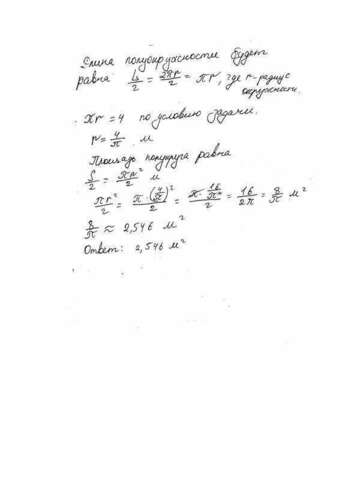 Длина полуокружности будет
равна L/2 = 2πr/2 = πr, где r-радиус
окружности.
πr = 4 по условию задачи.
r = 4/π м
Площадь полукруга равна
S/2 = πr²/2 м
πr²/2 = π·(4/π)²/2 = π·16/π²/2 = 16/2π = 8/π м²
8/π ≈ 2,546 м²
Ответ: 2,546 м²